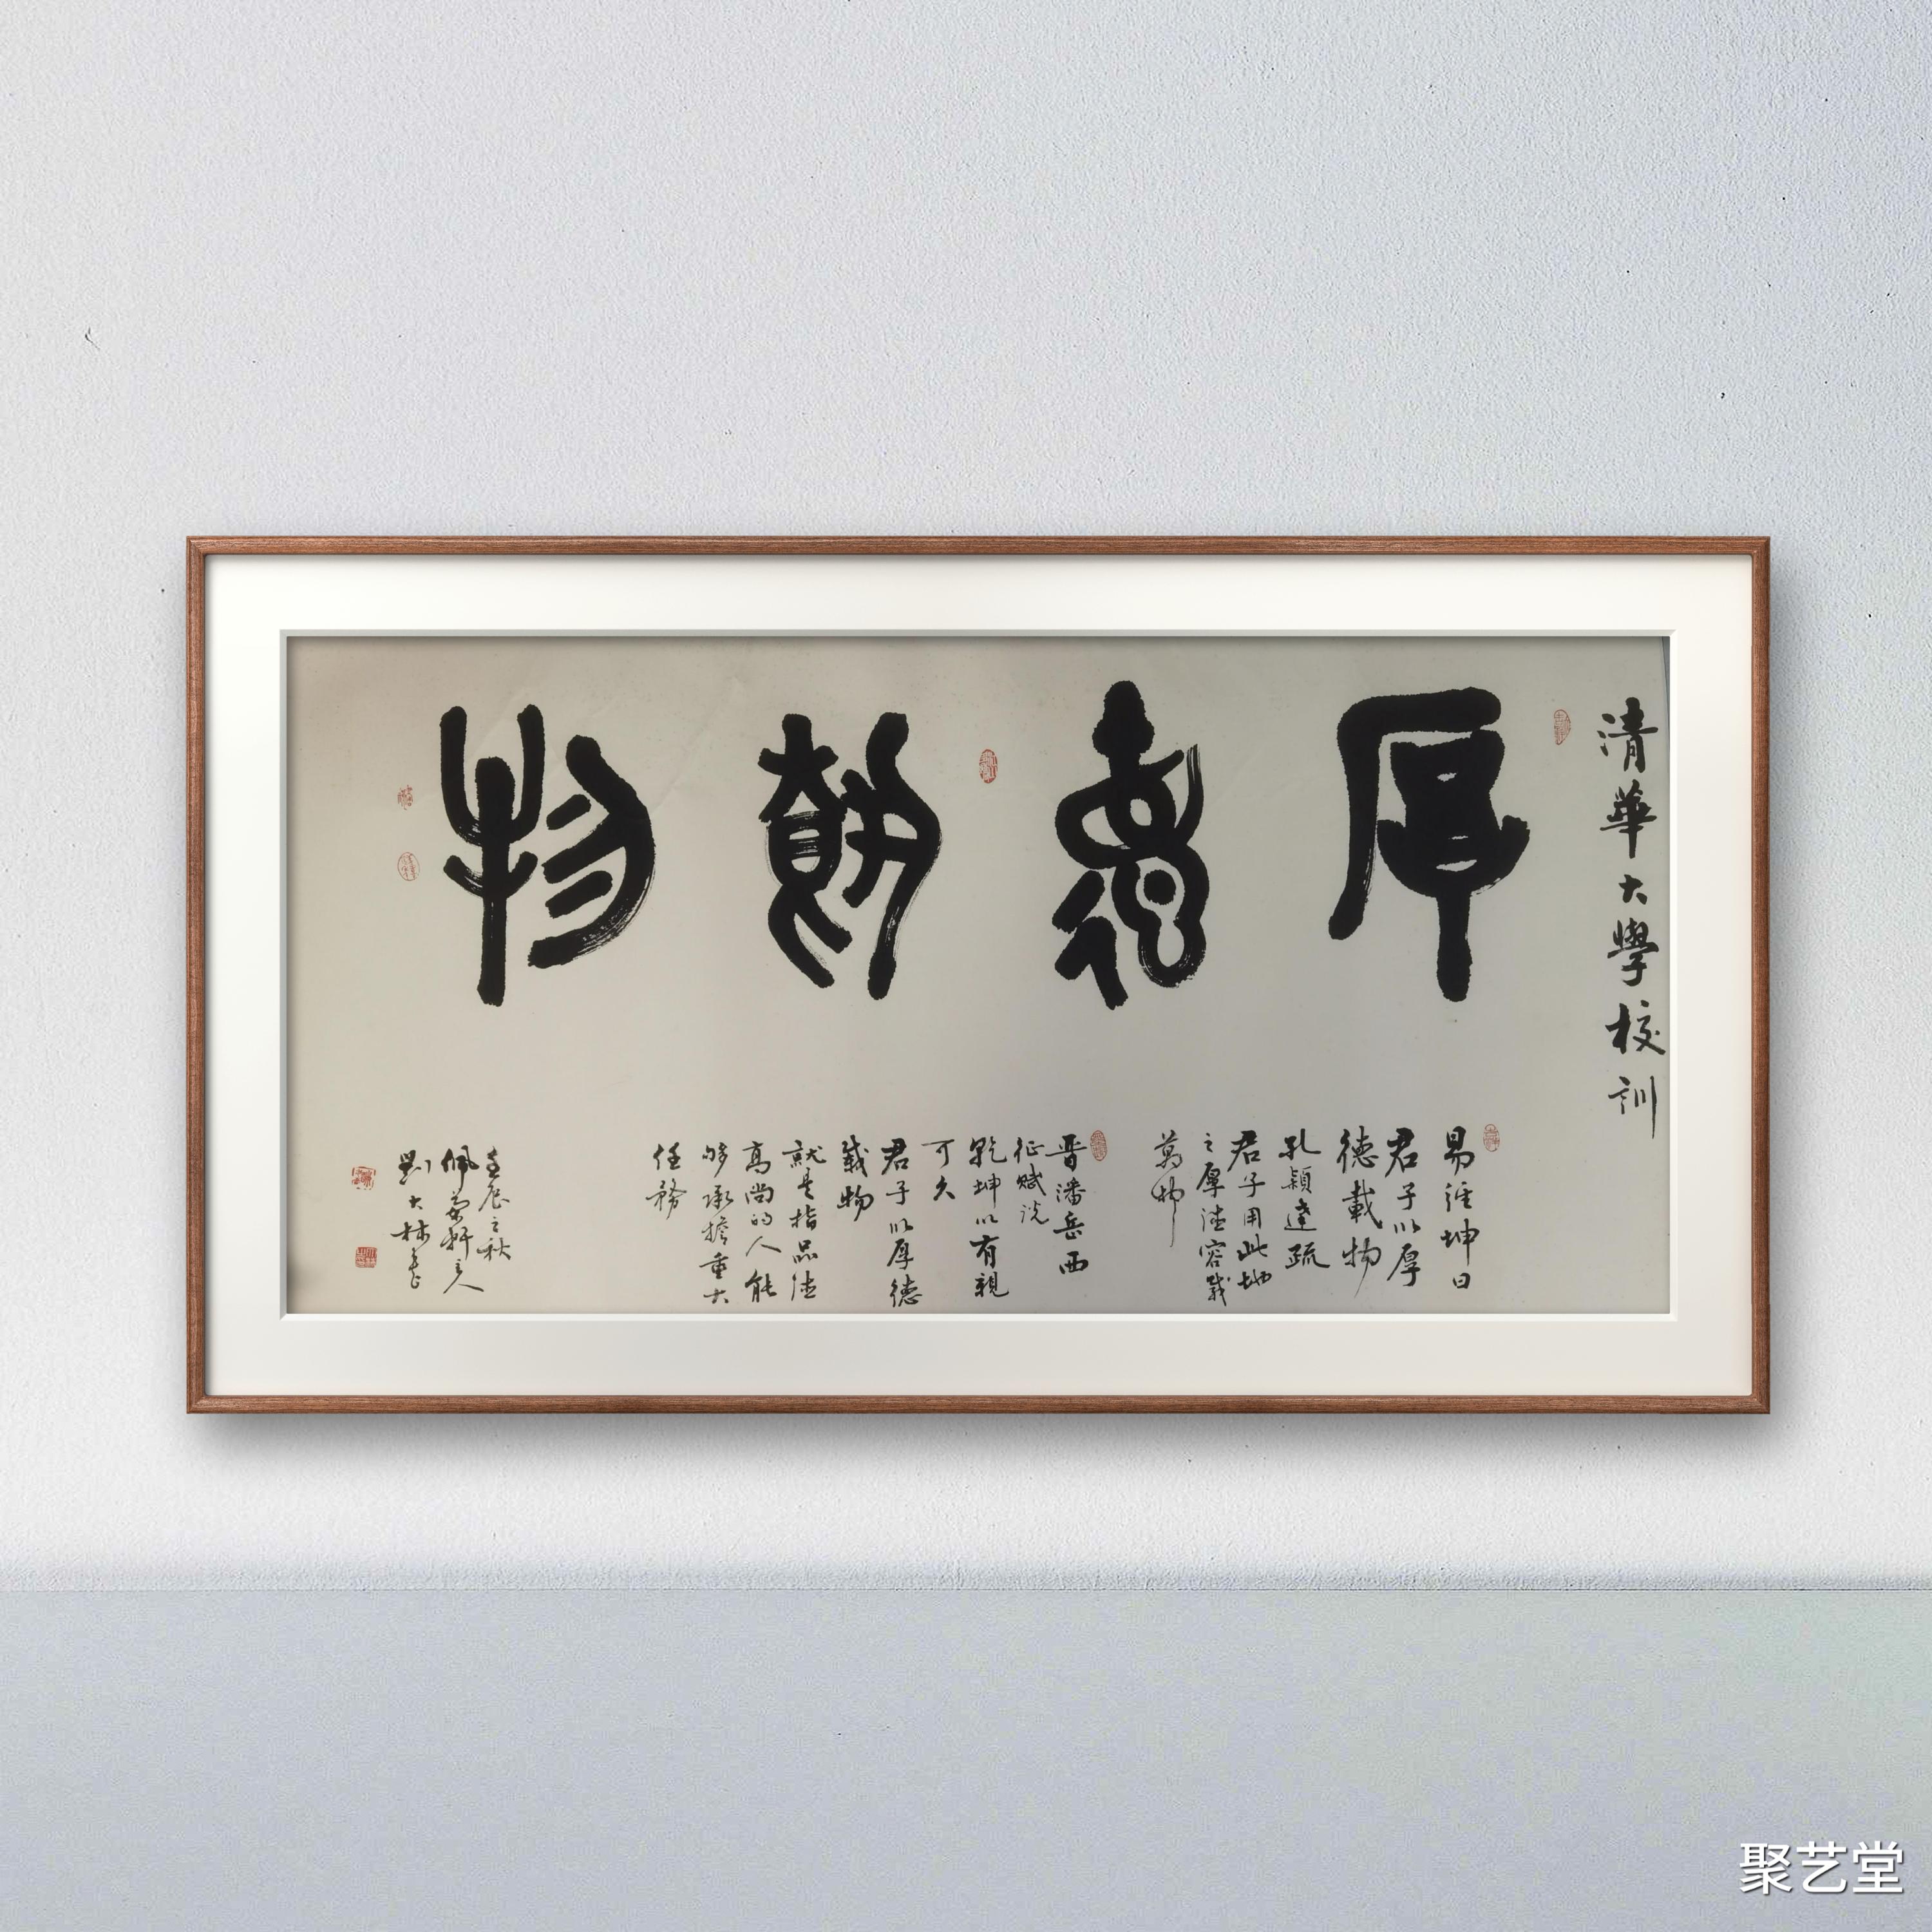 清華大學校訓
厚德載物
易經坤曰
君子以厚
德載物
孔穎達疏
君子用此地
之厚德容載
萬物
晋潘岳西
征赋说
乾坤以有親
可久
君子以厚德
載物
就是指品德
高尚的人能
够承擔重大
任務
壬辰之秋
佩蘭軒主人
劉大林書
聚艺堂